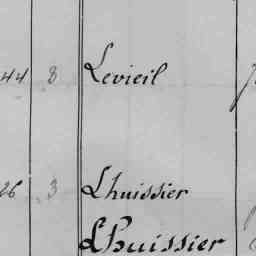 44 8 Levieil
26 3 Lhuissier
Lhuissier